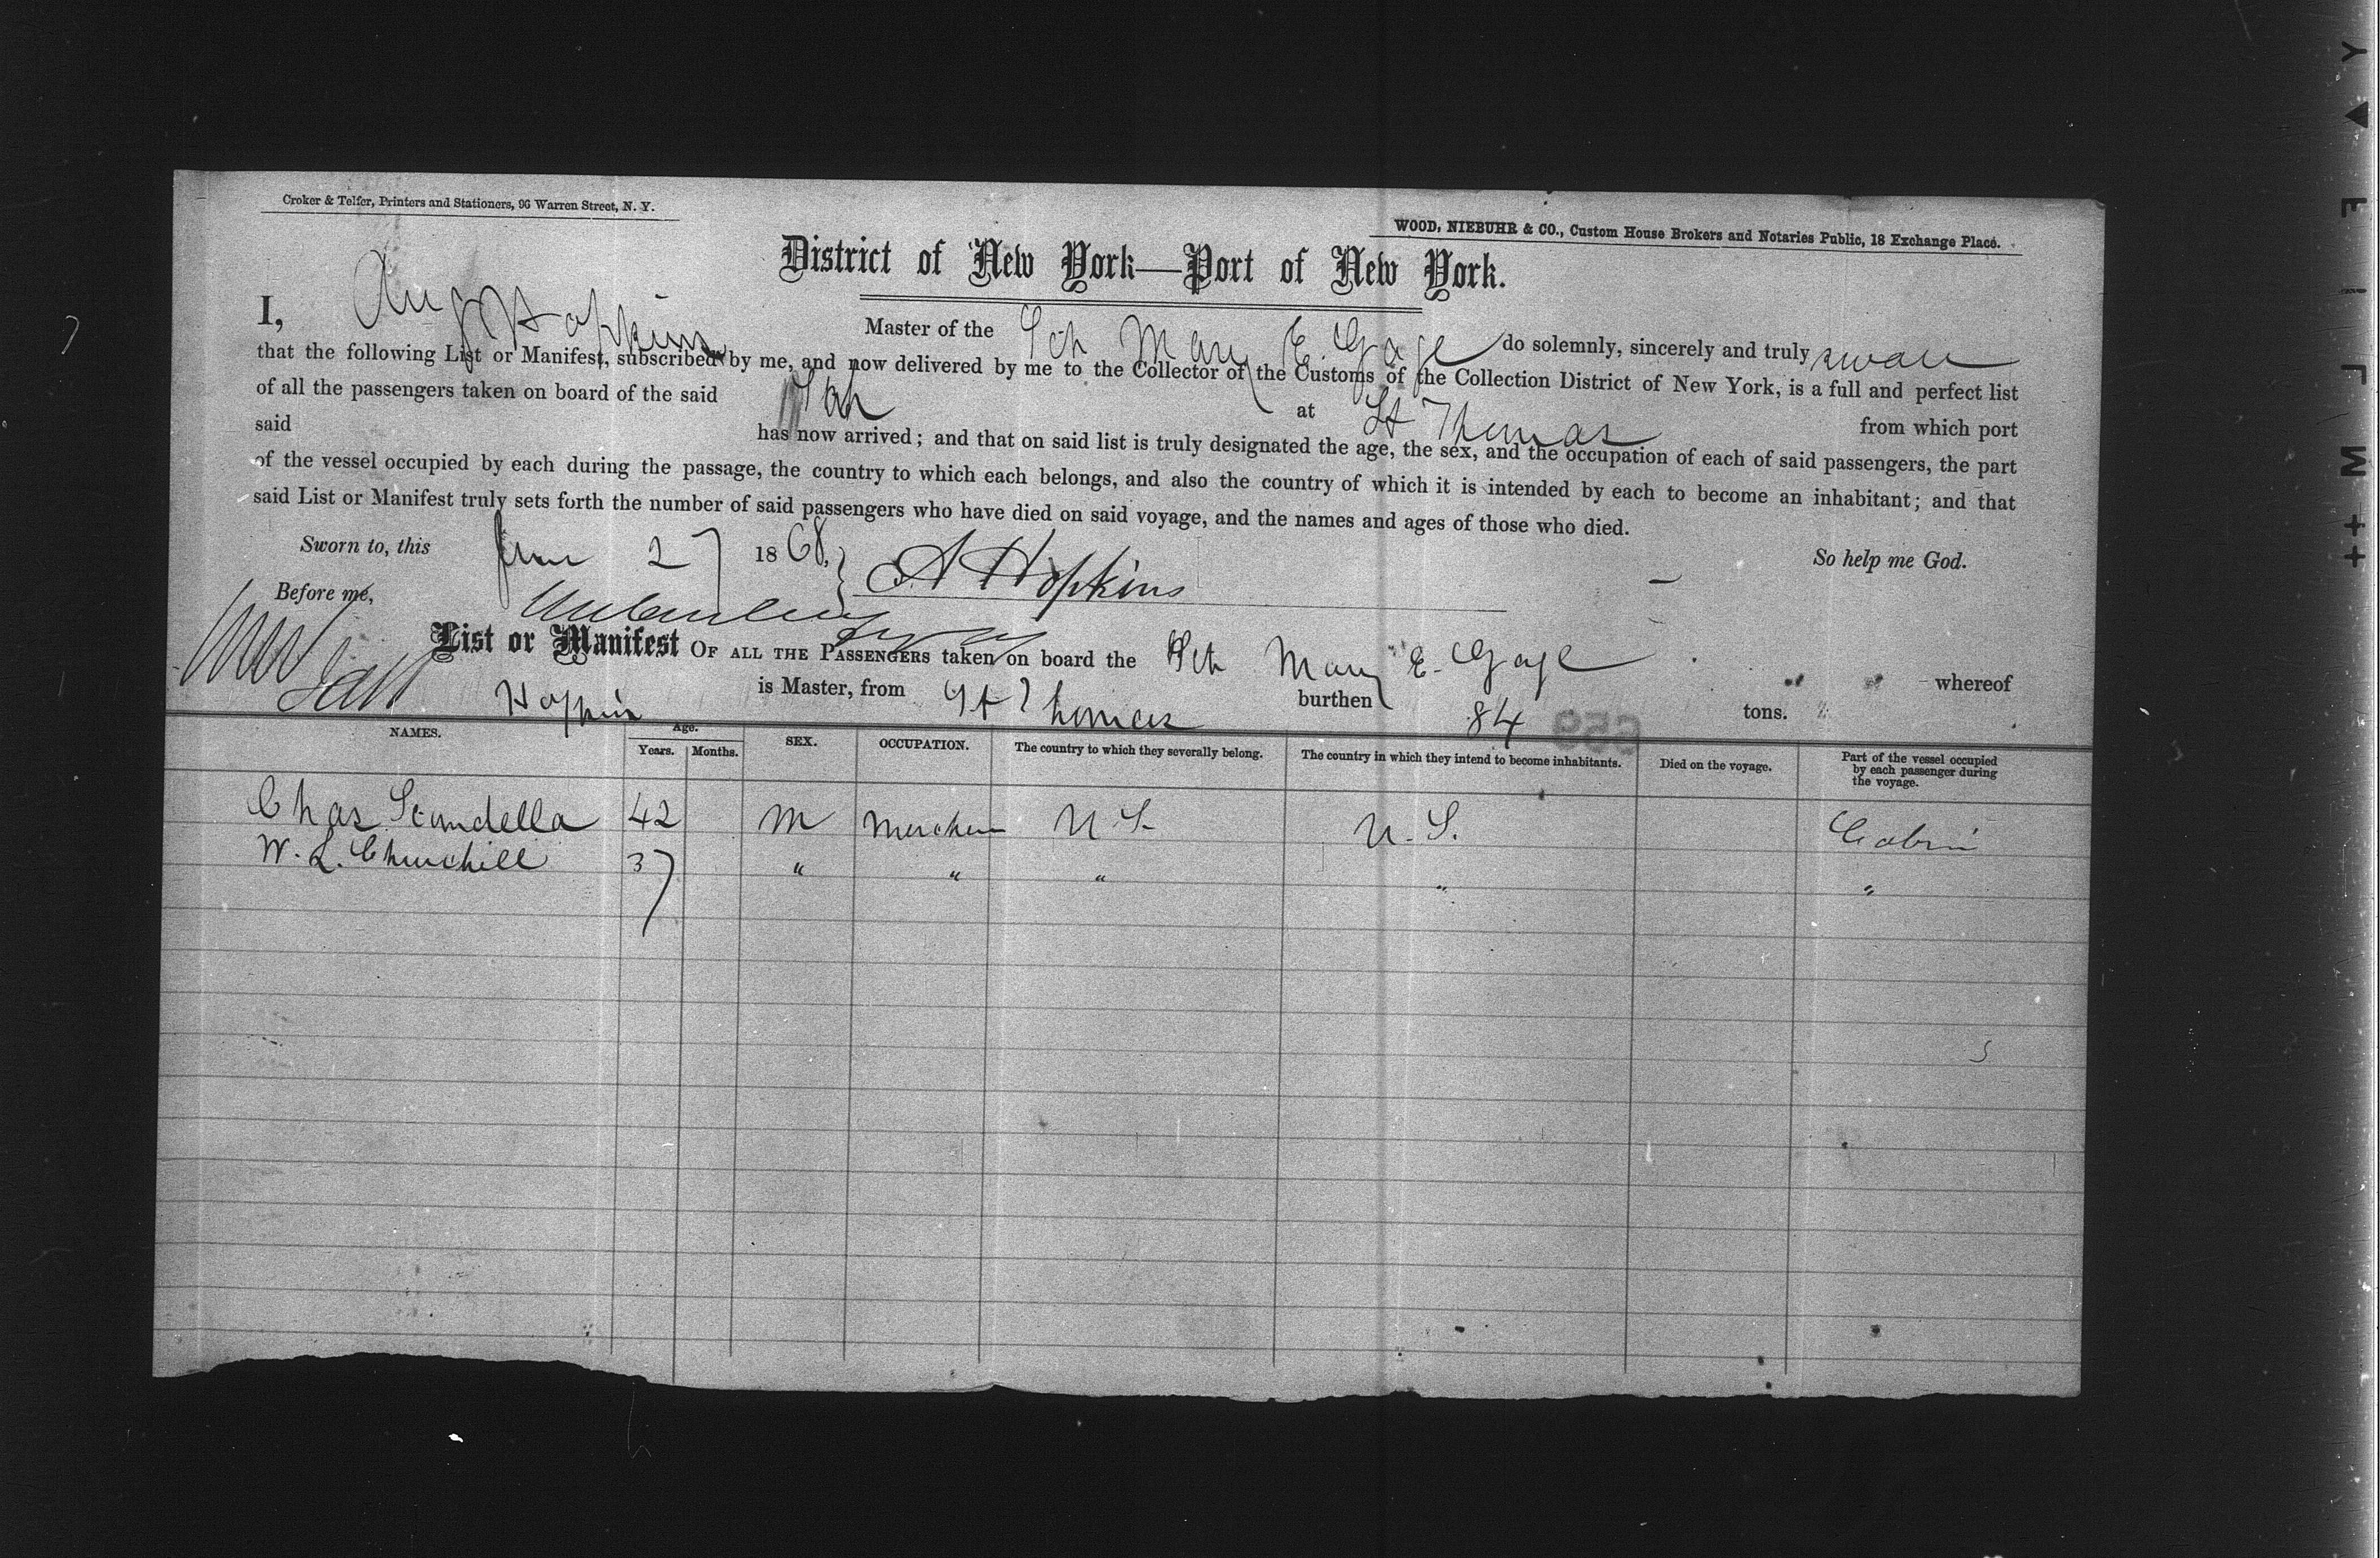 Croker & Telfer, Printers and Stationers, 96 Warren Street, N. Y.
WOOD, NIEBUHR & CO., Custom House Brokers and Notaries Public, 18 Exchange Place.
District of New York—Port of New York.
I, Aug Hopkins Master of the Sch Mary E. Gage do solemnly, sincerely and truly swear
that the following List or Manifest, subscribed by me, and now delivered by me to the Collector of the Customs of the Collection District of New York, is a full and perfect list
of all the passengers taken on board of the said Sch at St Thomas from which port
said has now arrived; and that on said list is truly designated the age, the sex, and the occupation of each of said passengers, the part
of the vessel occupied by each during the passage, the country to which each belongs, and also the country of which it is intended by each to become an inhabitant; and that
said List or Manifest truly sets forth the number of said passengers who have died on said voyage, and the names and ages of those who died.
Sworn to, this June 27 1868, A Hopkins So help me God.
Before me,
List or Manifest OF ALL THE PASSENGERS taken on board the Sch Mary E. Gage whereof
Hopkins is Master, from St Thomas burthen 84 tons.
659
NAMES. Age. Years. Months. SEX. OCCUPATION. The country to which they severally belong. The country in which they intend to become inhabitants. Died on the voyage. Part of the vessel occupied by each passenger during the voyage.
Chas Scundella 42 M Merchan U S U. S. Cabin
W. L. Churchill 37 " " " " "